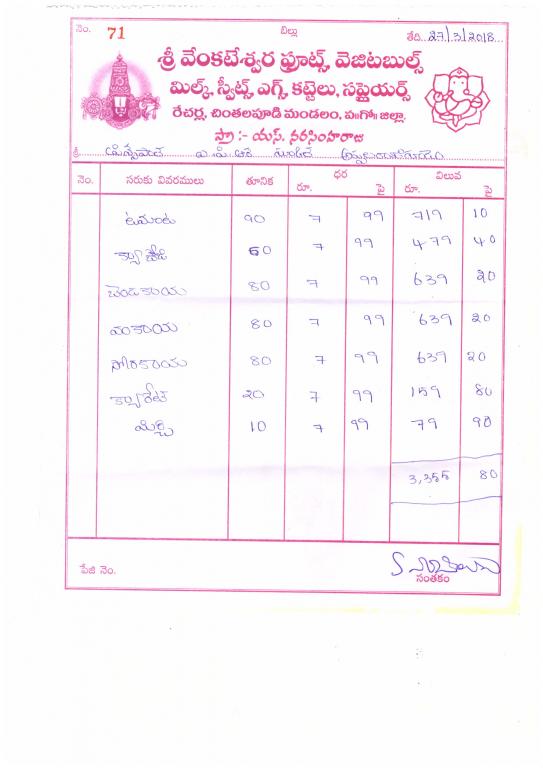 నెం. 71 బిల్లు తేది. 27/3/2018
శ్రీ వేంకటేశ్వర ఫ్రూట్స్, వెజిటబుల్స్
మిల్క్, స్వీట్స్, ఎగ్స్, కట్టెలు, సప్లైయర్స్
రేచర్ల, చింతలపూడి మండలం, ప॥గో॥ జిల్లా.
ప్రొ :- యస్. నరసింహరాజు
శ్రీ
నెం. సరుకు వివరములు తూనిక ధర రూ. పై విలువ రూ. పై
టమాట 90 7 99 719 10
క్యాబేజి 60 7 99 479 40
బెండకాయ 80 7 99 639 20
వంకాయ 80 7 99 639 20
సోరకాయ 80 7 99 639 20
క్యారేట్ 20 7 99 159 80
మిర్చి 10 7 99 79 90
3,355 80
పేజి నెం. సంతకం